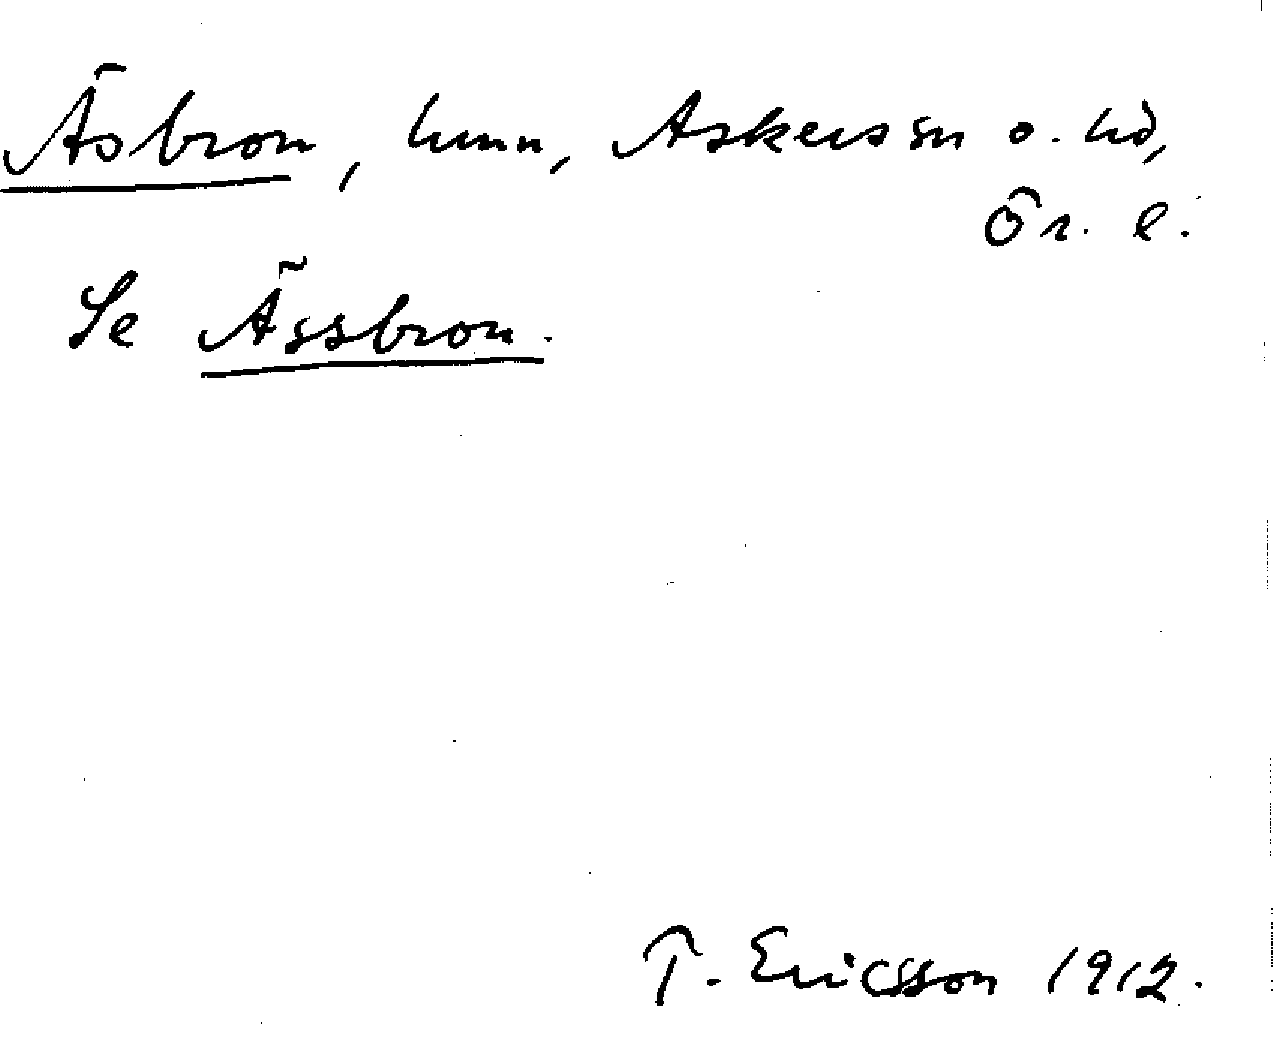 Äsbron, hmn, Asker sn o. hd,
Ör. l.
Se Ässbron.
T. Ericsson 1912.